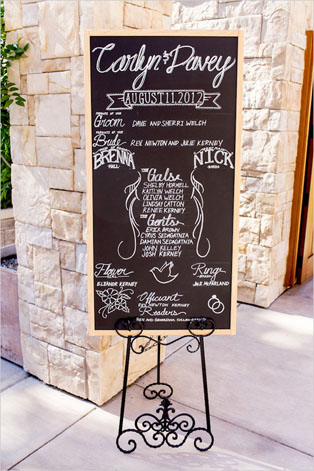 Carlyn & Davey
AUGUST 11, 2012
PARENTS OF THE
Groom DAVE AND SHERRI WELCH
PARENTS OF THE
Bride REV. NEWTON AND JULIE KERNEY
BRENNA NICK
The Gals
SHELBY HORMELL
KAITLYN WELCH
OLIVIA WELCH
LINDSAY CATTON
RENEE KERNEY
The Gents
ERICA BROWN
CYRUS SEDAGATNIA
DAMIAN SEDAGATNIA
JOHN KELLEY
JOSH KERNEY
Flower Rings
ELEANOR KERNEY JACK McFARLAND
Officiant
REV. NEWTON KERNEY
Readers